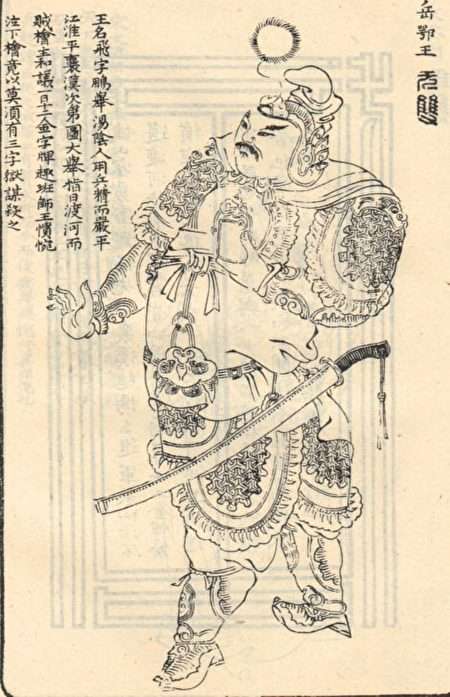 岳鄂王 无雙
王名飛字鵬舉湯陰人用兵精而嚴平
江淮平襄漢次第圖大舉指日渡河而
賊檜主和議日十二金字牌趣班師王憤惋
泣下檜竟以莫須有三字獄謀殺之